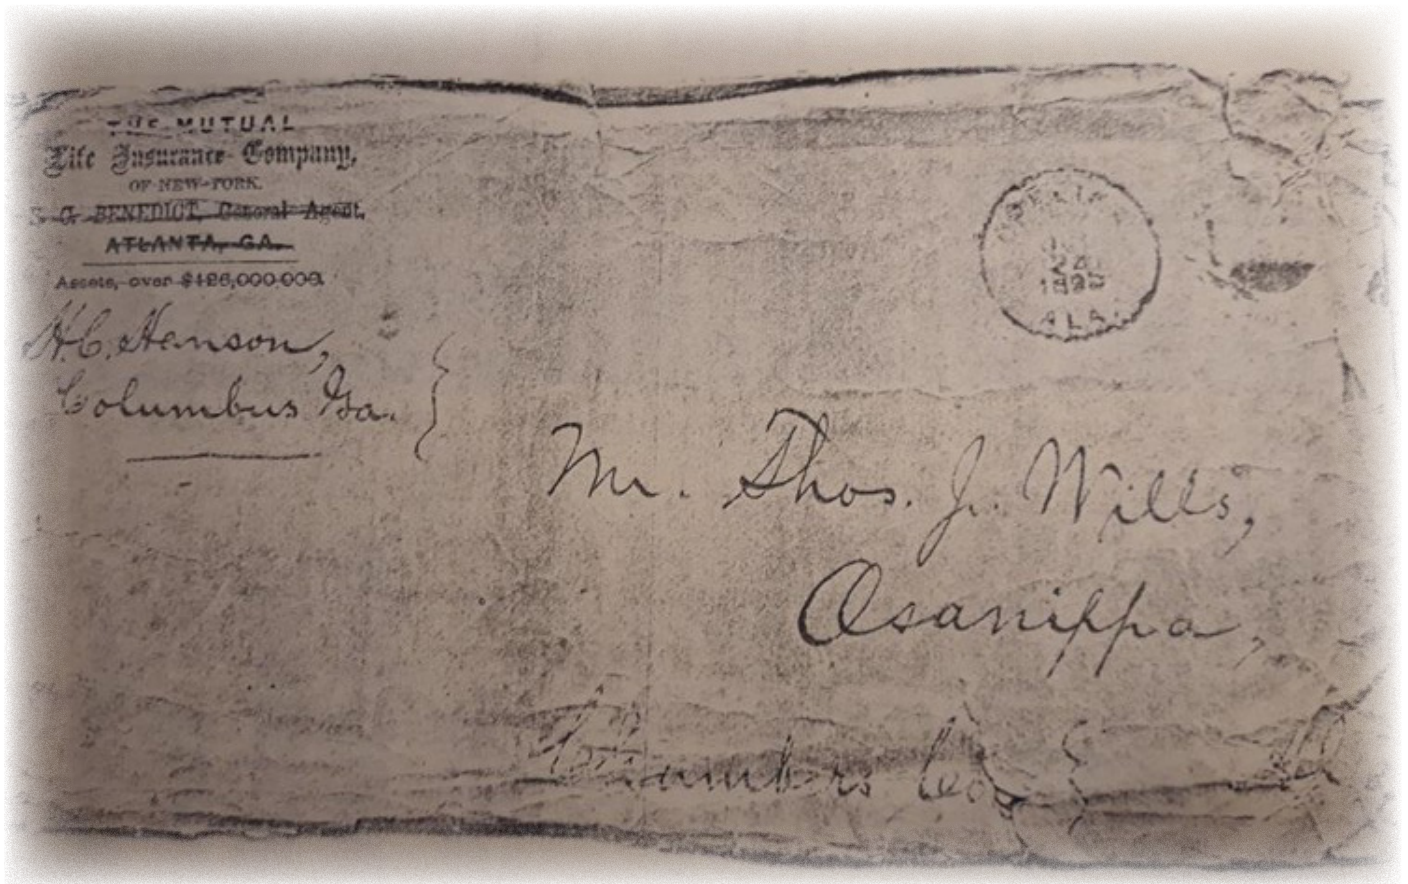 THE MUTUAL
Life Insurance Company,
OF NEW-YORK.
G. BENEDICT, General Agent,
ATLANTA, GA.
Assets, over $126,000,000.
H.C. Hanson,
Columbus Ga.
OPELIKA
24
189
ALA.
Mr. Thos. J. Wills,
Osanippa,
Chambers Co